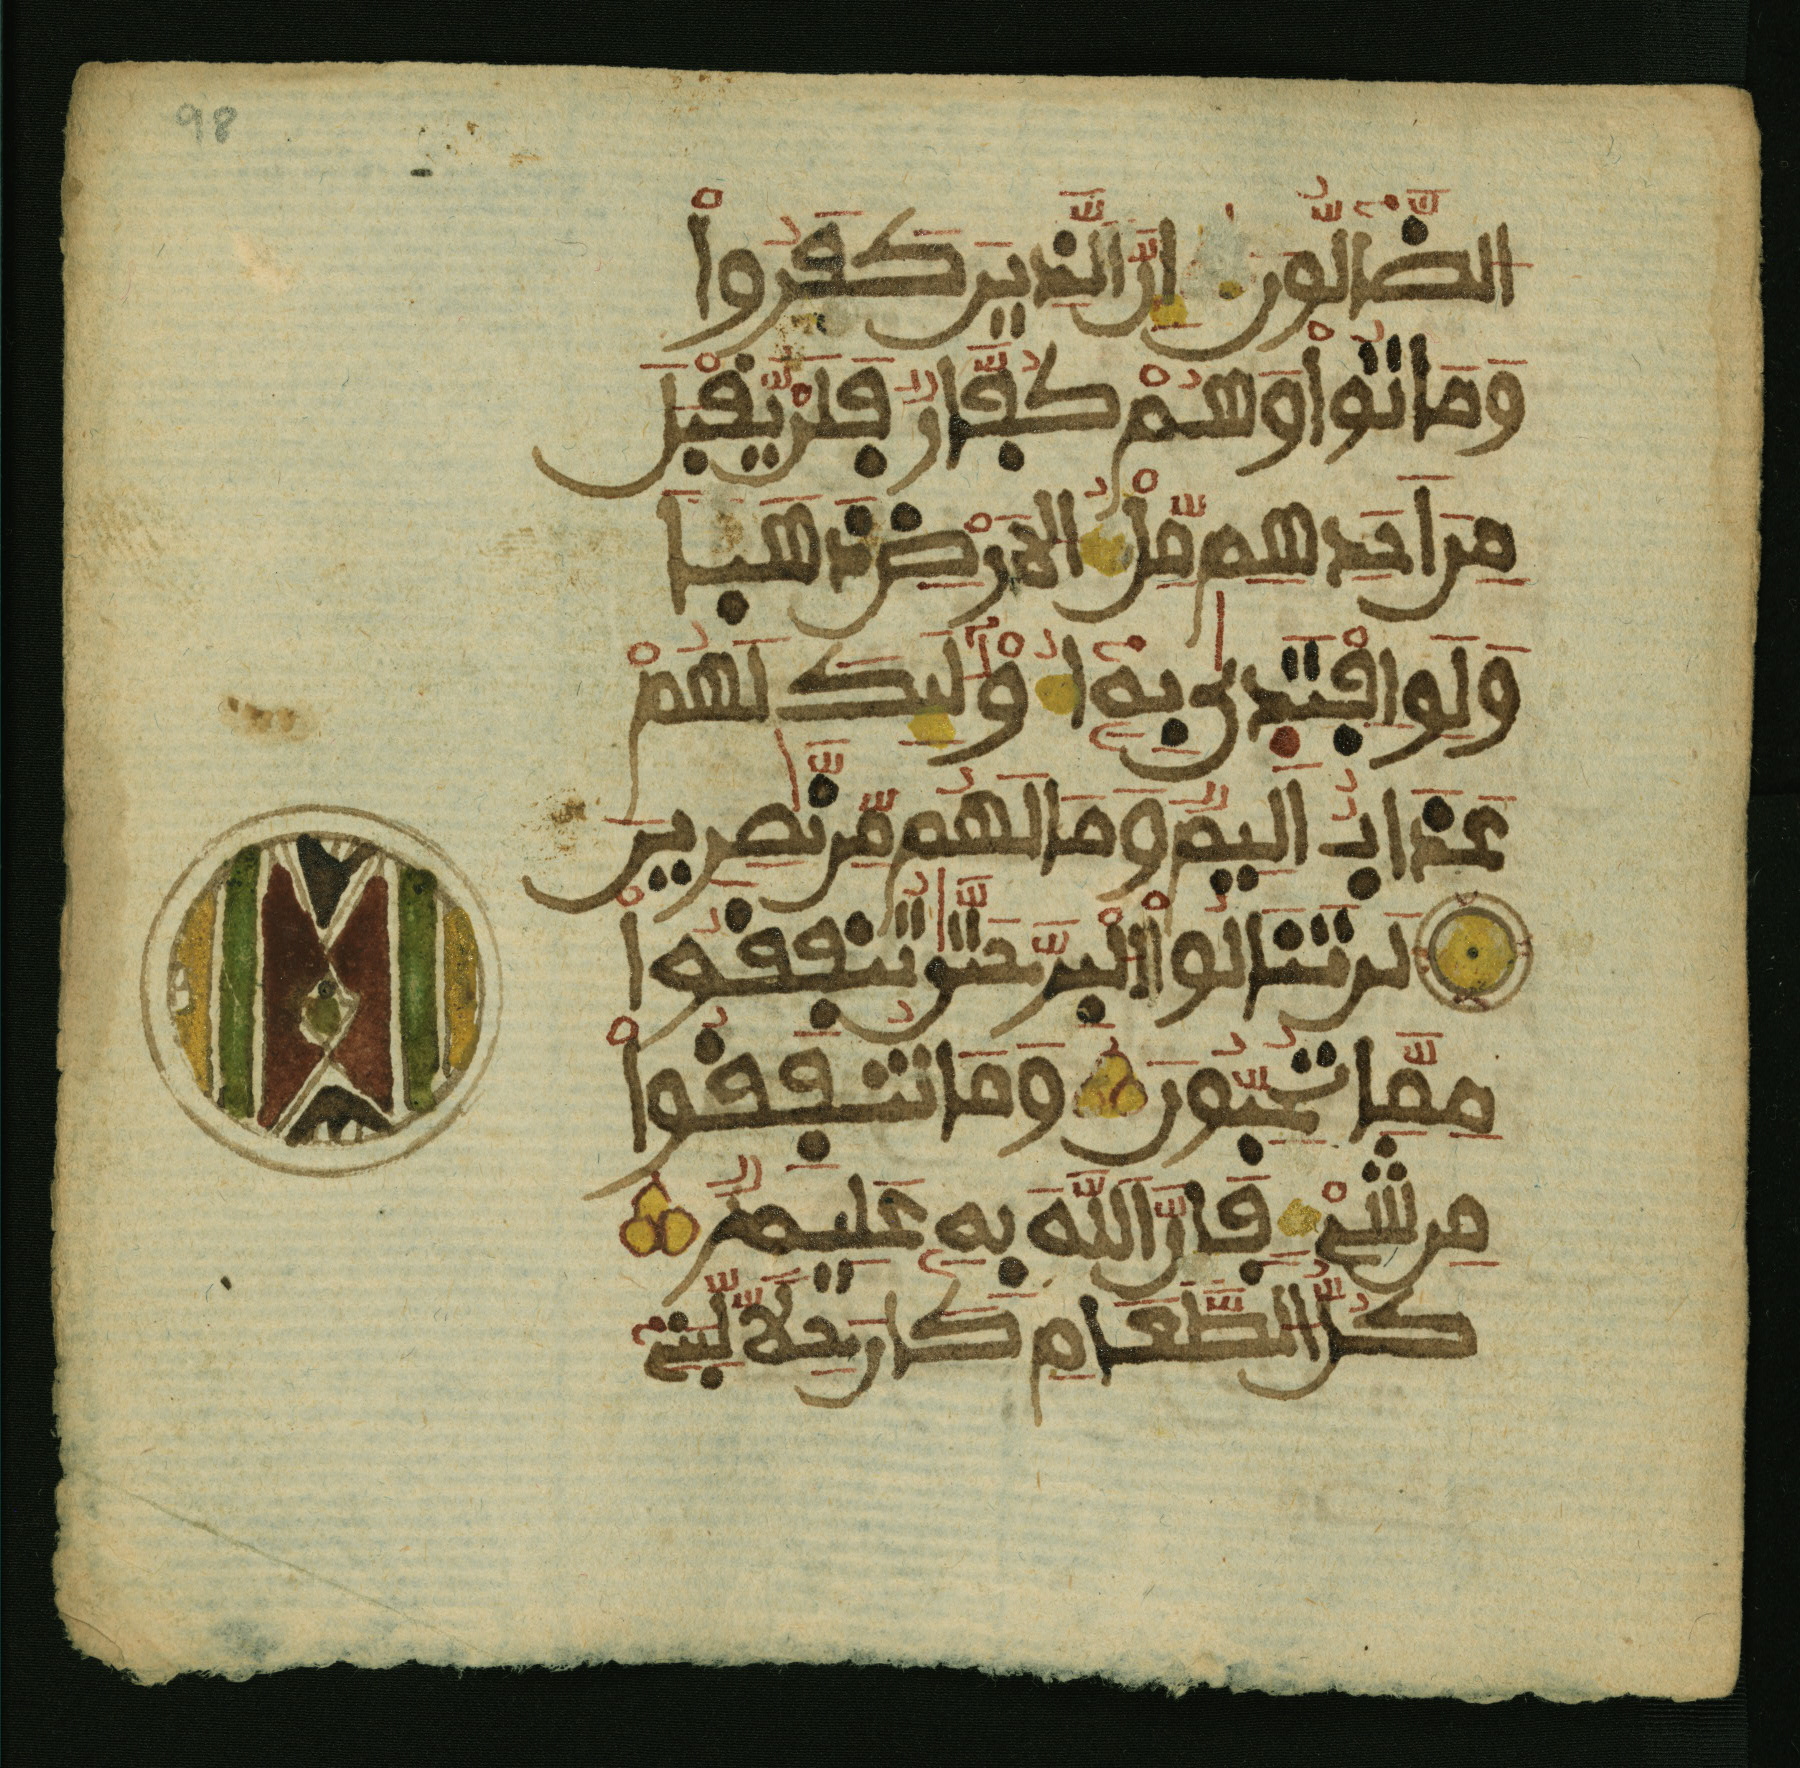 98
الضَّالُّونَ إِنَّ الَّذِينَ كَفَرُواْ
وَمَاتُواْ وَهُمْ كُفَّارٌ فَلَنْ يُّقْبَلَ
مِنَ احَدِهِم مِّلْءُ الَارْضِ ذَهَبا
وَلَوِ افْتَدىٰ بِهِ أُوْلَٰئِكَ لَهُمْ
عَذَابٌ اَلِيمٌ وَمَا لَهُم مِّن نَّٰصِرِينَ
لَن تَنَالُواْ الْبِرَّ حَتَّىٰ تُنفِقُواْ
مِمَّا تُحِبُّونَ وَمَا تُنفِقُواْ
مِن شَيْءٍ فَإِنَّ اللَّهَ بِهِ عَلِيمٌ
كُلُّ الطَّعَامِ كَانَ حِلّاً لِّبَنِي